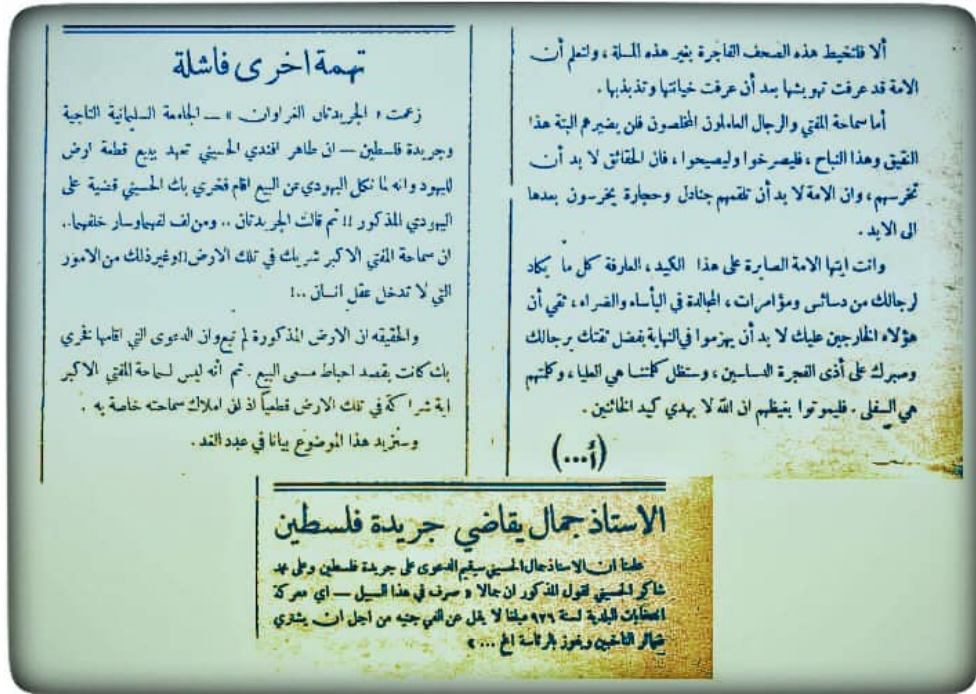 ألا فلتخيط هذه الصحف الفاجرة بغير هذه المسلة ، ولتعلم أن
الامة قد عرفت تهويشها بعد أن عرفت خيانتها وتذبذبها .
أما سماحة المفتي والرجال العاملون المخلصون فلن يضيرهم البتة هذا
النقيق وهذا النباح ، فليصرخوا وليصيحوا ، فان الحقائق لا بد أن
تخرسهم ، وان الامة لا بد أن تلقمهم جنادل وحجارة يخرسون بعدها
الى الابد .
وانت ايتها الامة الصابرة على هذا الكيد ، العارفة كل ما يكاد
لرجالك من دسائس ومؤامرات ، المجالدة في البأساء والضراء ، ثقي أن
هؤلاء الخارجين عليك لا بد أن يهزموا في النهاية بفضل ثقتك برجالك
وصبرك على أذى الفجرة الدساسين ، وستظل كلمتنا هي العليا ، وكلمتهم
هي السفلى . فليموتوا بغيظهم ان الله لا يهدي كيد الخائنين .
(أ...)
تهمة اخرى فاشلة
زعمت « الجريدتان الغراوان » — الجامعة السليمانية التاجية
وجريدة فلسطين — ان طاهر افندي الحسيني تعهد ببيع قطعة ارض
لليهود وانه لما نكل اليهودي عن البيع اقام فخري بك الحسيني قضية على
اليهودي المذكور !! ثم قالت الجريدتان .. ومن لف لفهما وسار خلفهما..
ان سماحة المفتي الاكبر شريك في تلك الارض !! وغير ذلك من الامور
التي لا تدخل عقل انسان ..!
والحقيقه ان الارض المذكورة لم تبع وان الدعوى التي اقامها فخري
بك كانت بقصد احباط مسعى البيع . ثم انه ليس لسماحة المفتي الاكبر
اية شراكة في تلك الارض قطعياً اذ ان املاك سماحته خاصة به .
وسنزيد هذا الموضوع بيانا في عدد الغد .
الاستاذ جمال يقاضي جريدة فلسطين
علمنا ان الاستاذ جمال الحسيني سيقيم الدعوى على جريدة فلسطين وعلى
شاكر الحسيني لقول المذكور ان جمالا « صرف في هذا السبيل — اي معركة
انتخابات البلدية لسنة ٩٢٦ مبلغا لا يقل عن الفي جنيه من اجل ان يشتري
ضمائر الناخبين ويفوز بالرئاسة الخ ... »